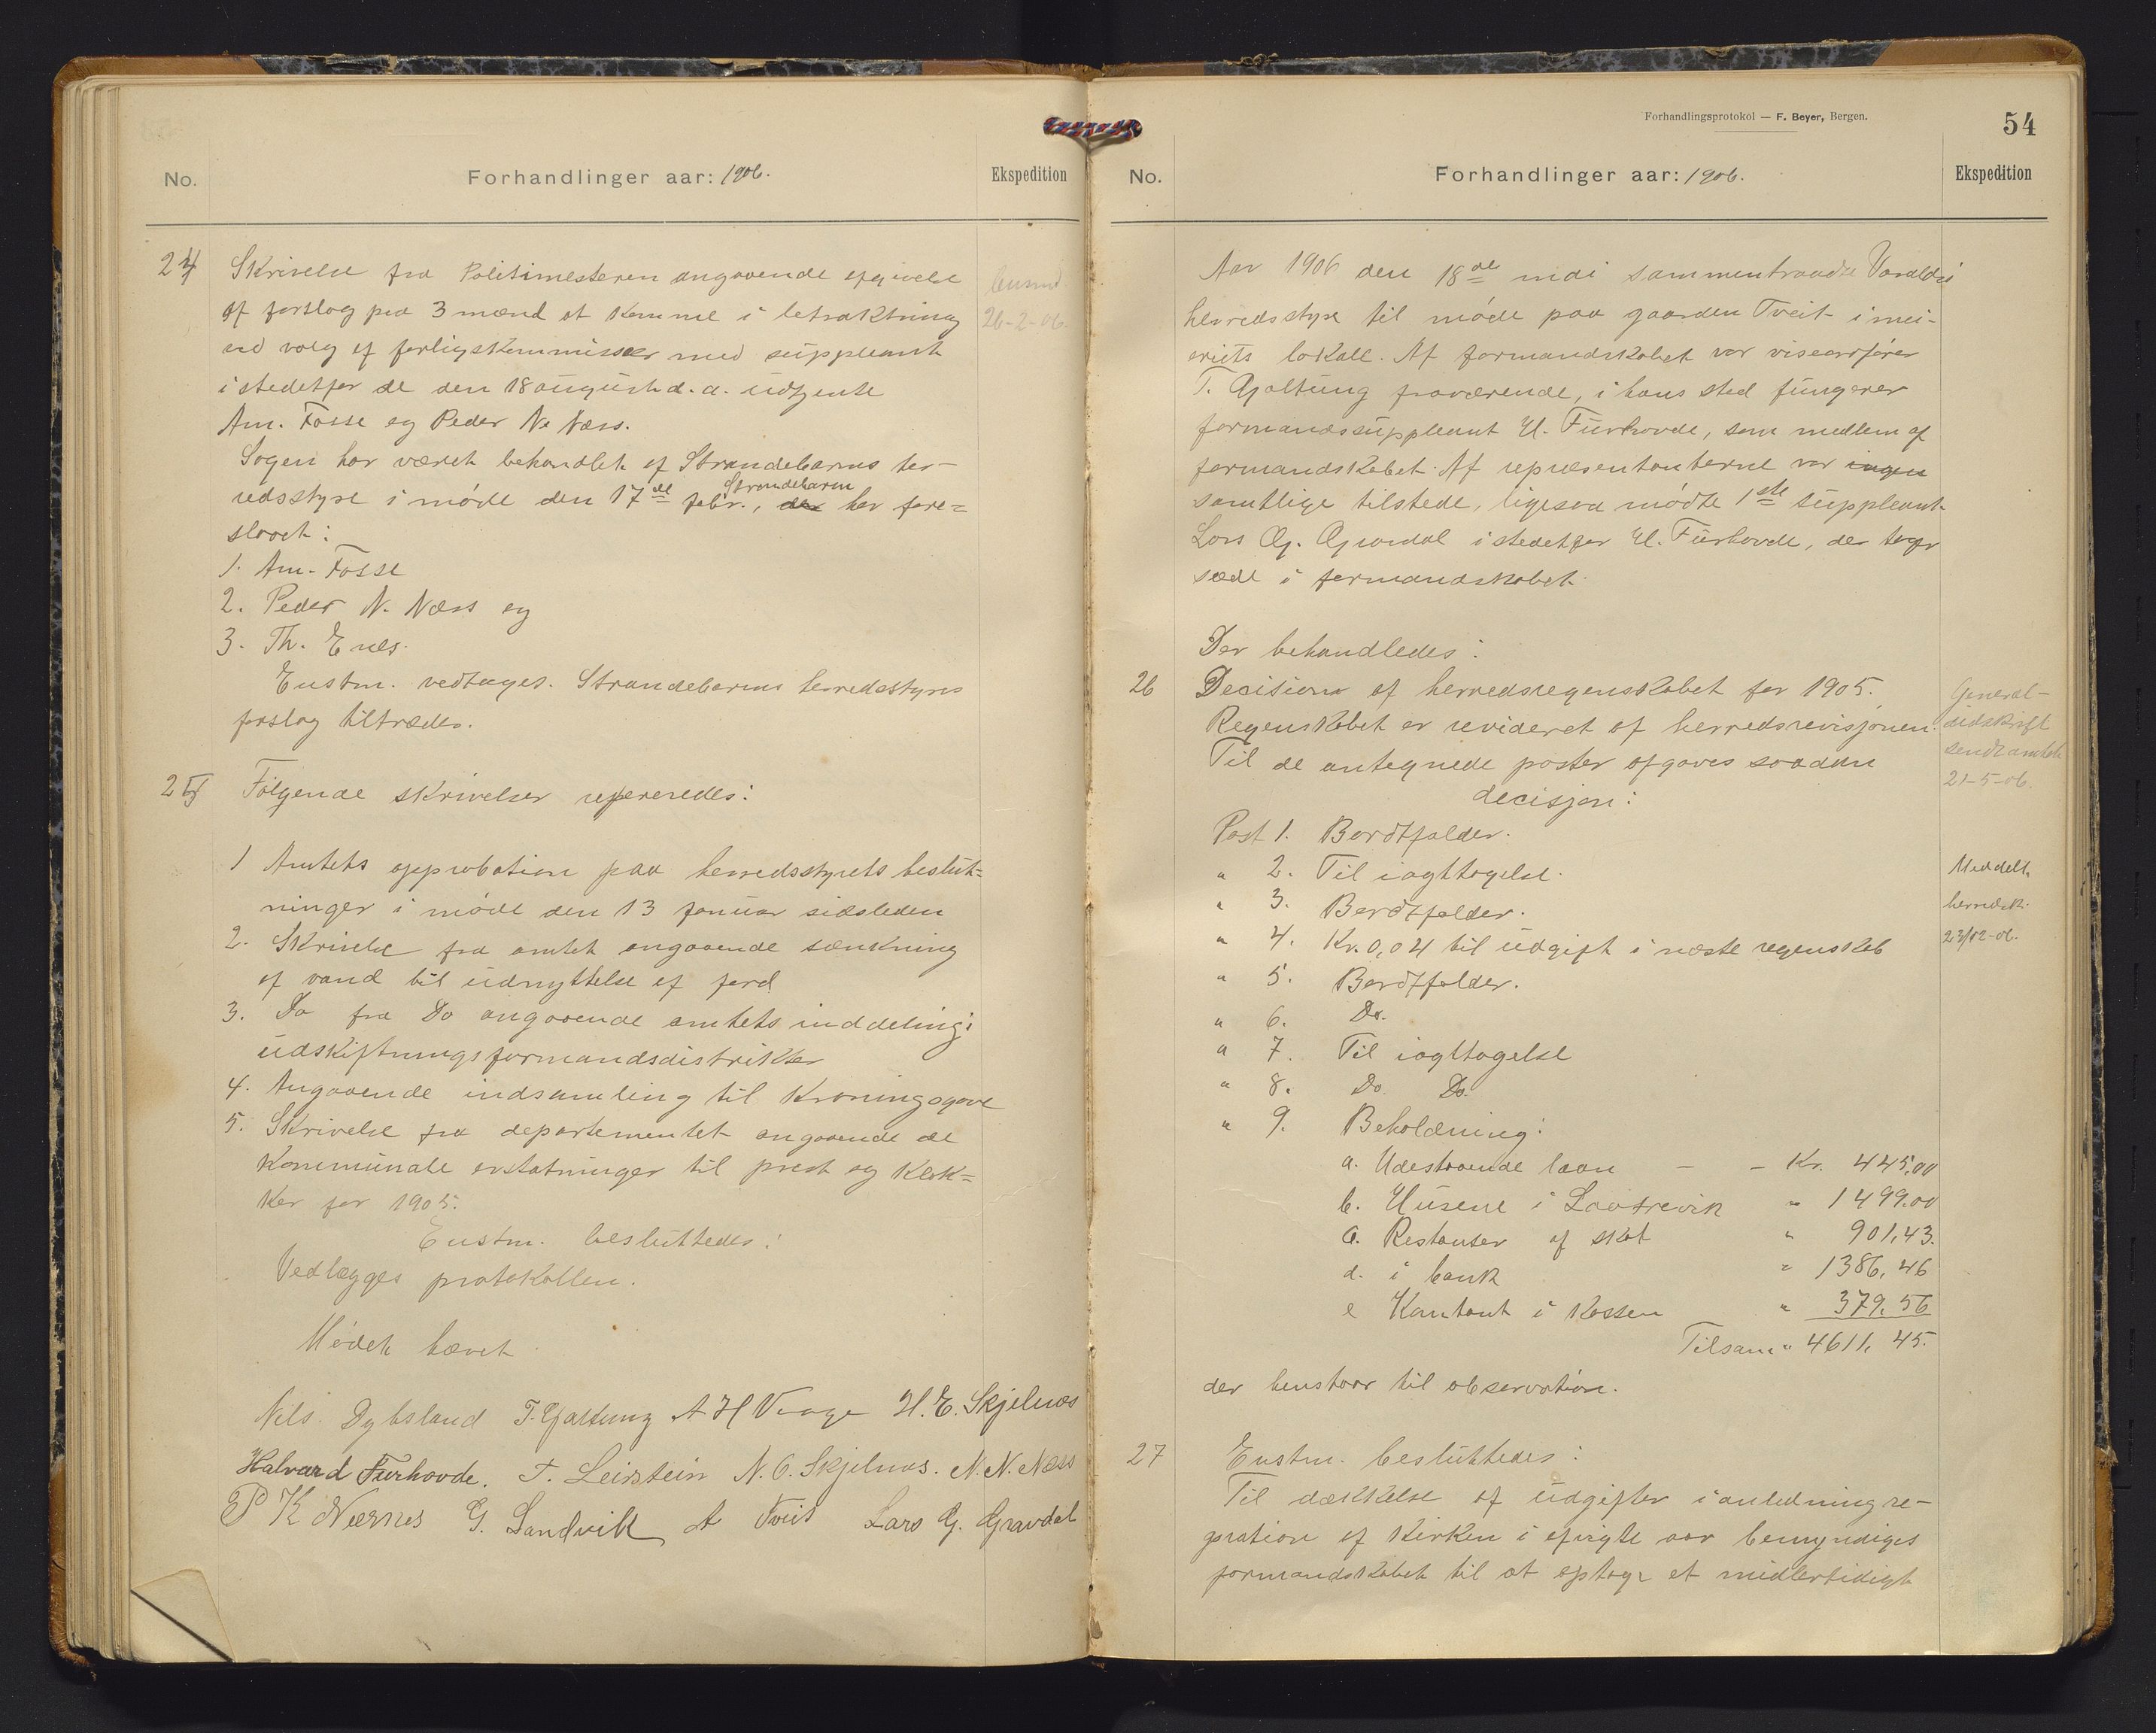 No. Forhandlinger aar: 1906. Ekspedition
24 Skrivelse fra Politimesteren angaaende opgivelse
af forslag paa 3 mænd at komme i betraktning
ved valg af forligskommissær med suppleant
istedetfor de den 18 august d. a. udtjente
Am. Fosse og Peder N. Næss.
Sagen har været behandlet af Strandebarms her-
redsstyre i møde den 17de febr., Strandebarm har fore-
slaaet:
1. Am. Fosse
2. Peder N. Næss og
3. Th. Enes.
Enstm. vedtages. Strandebarms herredsstyres
forslag tiltrædes.
26-2-06.
25 Følgende skrivelser refereredes:
1 Amtets approbation paa herredsstyrets beslut=
ninger i møde den 13 januar sidsleden
2. Skrivelse fra amtet angaaende sænkning
af vand til udnyttelse af jord
3. Do fra Do angaaende amtets inddeling i
udskiftningsformandsdistrikter
4. Angaaende indsamling til Kroningsgave
5. Skrivelse fra departementet angaaende de
kommunale erstatninger til prest og klok=
ker for 1905.
Enstm. besluttedes:
Vedlægges protokollen.
Mødet hævet.
Nils Dybsland T. Gjaltung A H Vaage H. E. Skjelnæs
Halvard Furhovde. T. Leirstein N. O. Skjelnæs. N. N. Næss
P K Nærnes G. Sandvik A Tveit Lars G. Gravdal
Forhandlingsprotokol — F. Beyer, Bergen.
54
No. Forhandlinger aar: 1906. Ekspedition
Aar 1906 den 18de mai sammentraadte Varaldsø
herredsstyre til møde paa gaarden Tveit i mei-
eriets lokale. Af formandskabet var viseordfører
T. Gjaltung fraværende, i hans sted fungerer
formandssuppleant H. Furhovde, som medlem af
formandskabet. Af repræsentanterne var ingen
samtlige tilstede, ligesaa mødte 1ste suppleant
Lars G. Gravdal istedetfor H. Furhovde, der tager
sæde i formandskabet.
Der behandledes:
26 Decision af herredsregnskabet for 1905.
Regnskabet er revideret af herredsrevisjonen.
Til de antegnede poster afgaves saadan
decisjon:
General-
udskrift
sendt amtet
21-5-06.
Post 1. Bortfalder.
" 2. Til iagttagelse.
" 3. Bortfalder.
" 4. Kr. 0,04 til udgift i næste regnskab
" 5. Bortfalder.
" 6. Do.
" 7. Til iagttagelse
" 8. Do. Do.
" 9. Beholdning:
Meddelt
herredsk.
23/12-06.
a. Udestaaende laan - - Kr. 445,00
b. Husene i Laatrevik " 1499.00
c. Restanser af skat " 901,43.
d. i bank " 1386,46
e Kontant i kassen " 379.56
Tilsam. " 4611,45.
der henstaar til observation.
27 Enstm. besluttedes:
Til dækkelse af udgifter i anledning re-
pration af kirken i afvigte aar bemyndiges
formandskabet til at optage et midlertidigt